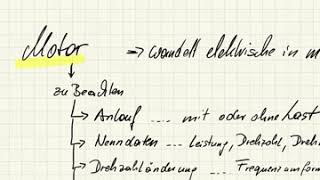 Motor → wandelt elektrische in m
zu Beachten
→ Anlauf ... mit oder ohne Last
→ Nenndaten .... Leistung, Drehzahl, Dreh
→ Drehzahländerung .... Frequenzumform